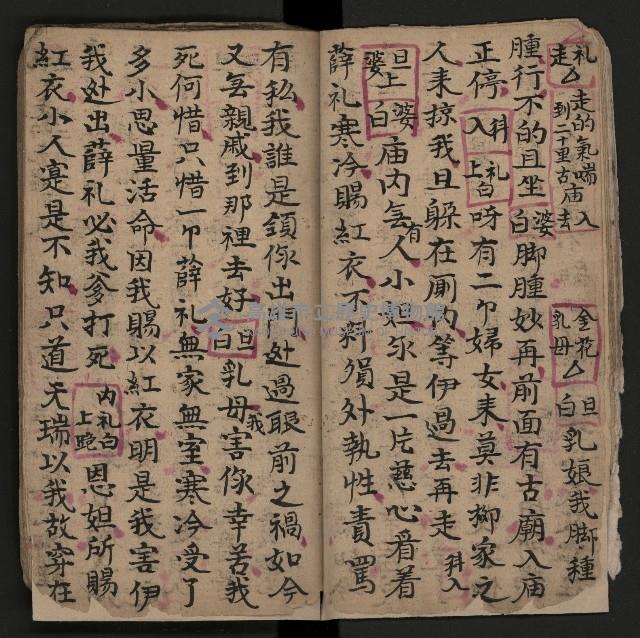 礼走△走的氣喘入到二十里古庙去 金花乳母△旦白乳娘我脚種
腫行不的且坐婆白脚腫妙再前面有古廟入庙
正停科入礼上白呀有二卩婦女来莫非柳家之
人来掠我且躲在厠内等伊過去再走科入
旦上婆婆白庙内無有人小妲你是一片慈心看着
薛礼寒冷賜紅衣不料須外執性責罵
有私我誰是領你出処過眼前之禍如今
又無親戚到那裡去好旦白乳母我害你幸苦我
死何惜只惜一卩薛礼無家無室寒冷受了
多小思量活命因我賜以紅衣明是我害伊
我处出薛礼必我爹打死内礼白上晚恩妲所賜
紅衣小人寔是不知只道天瑞以我故穿在